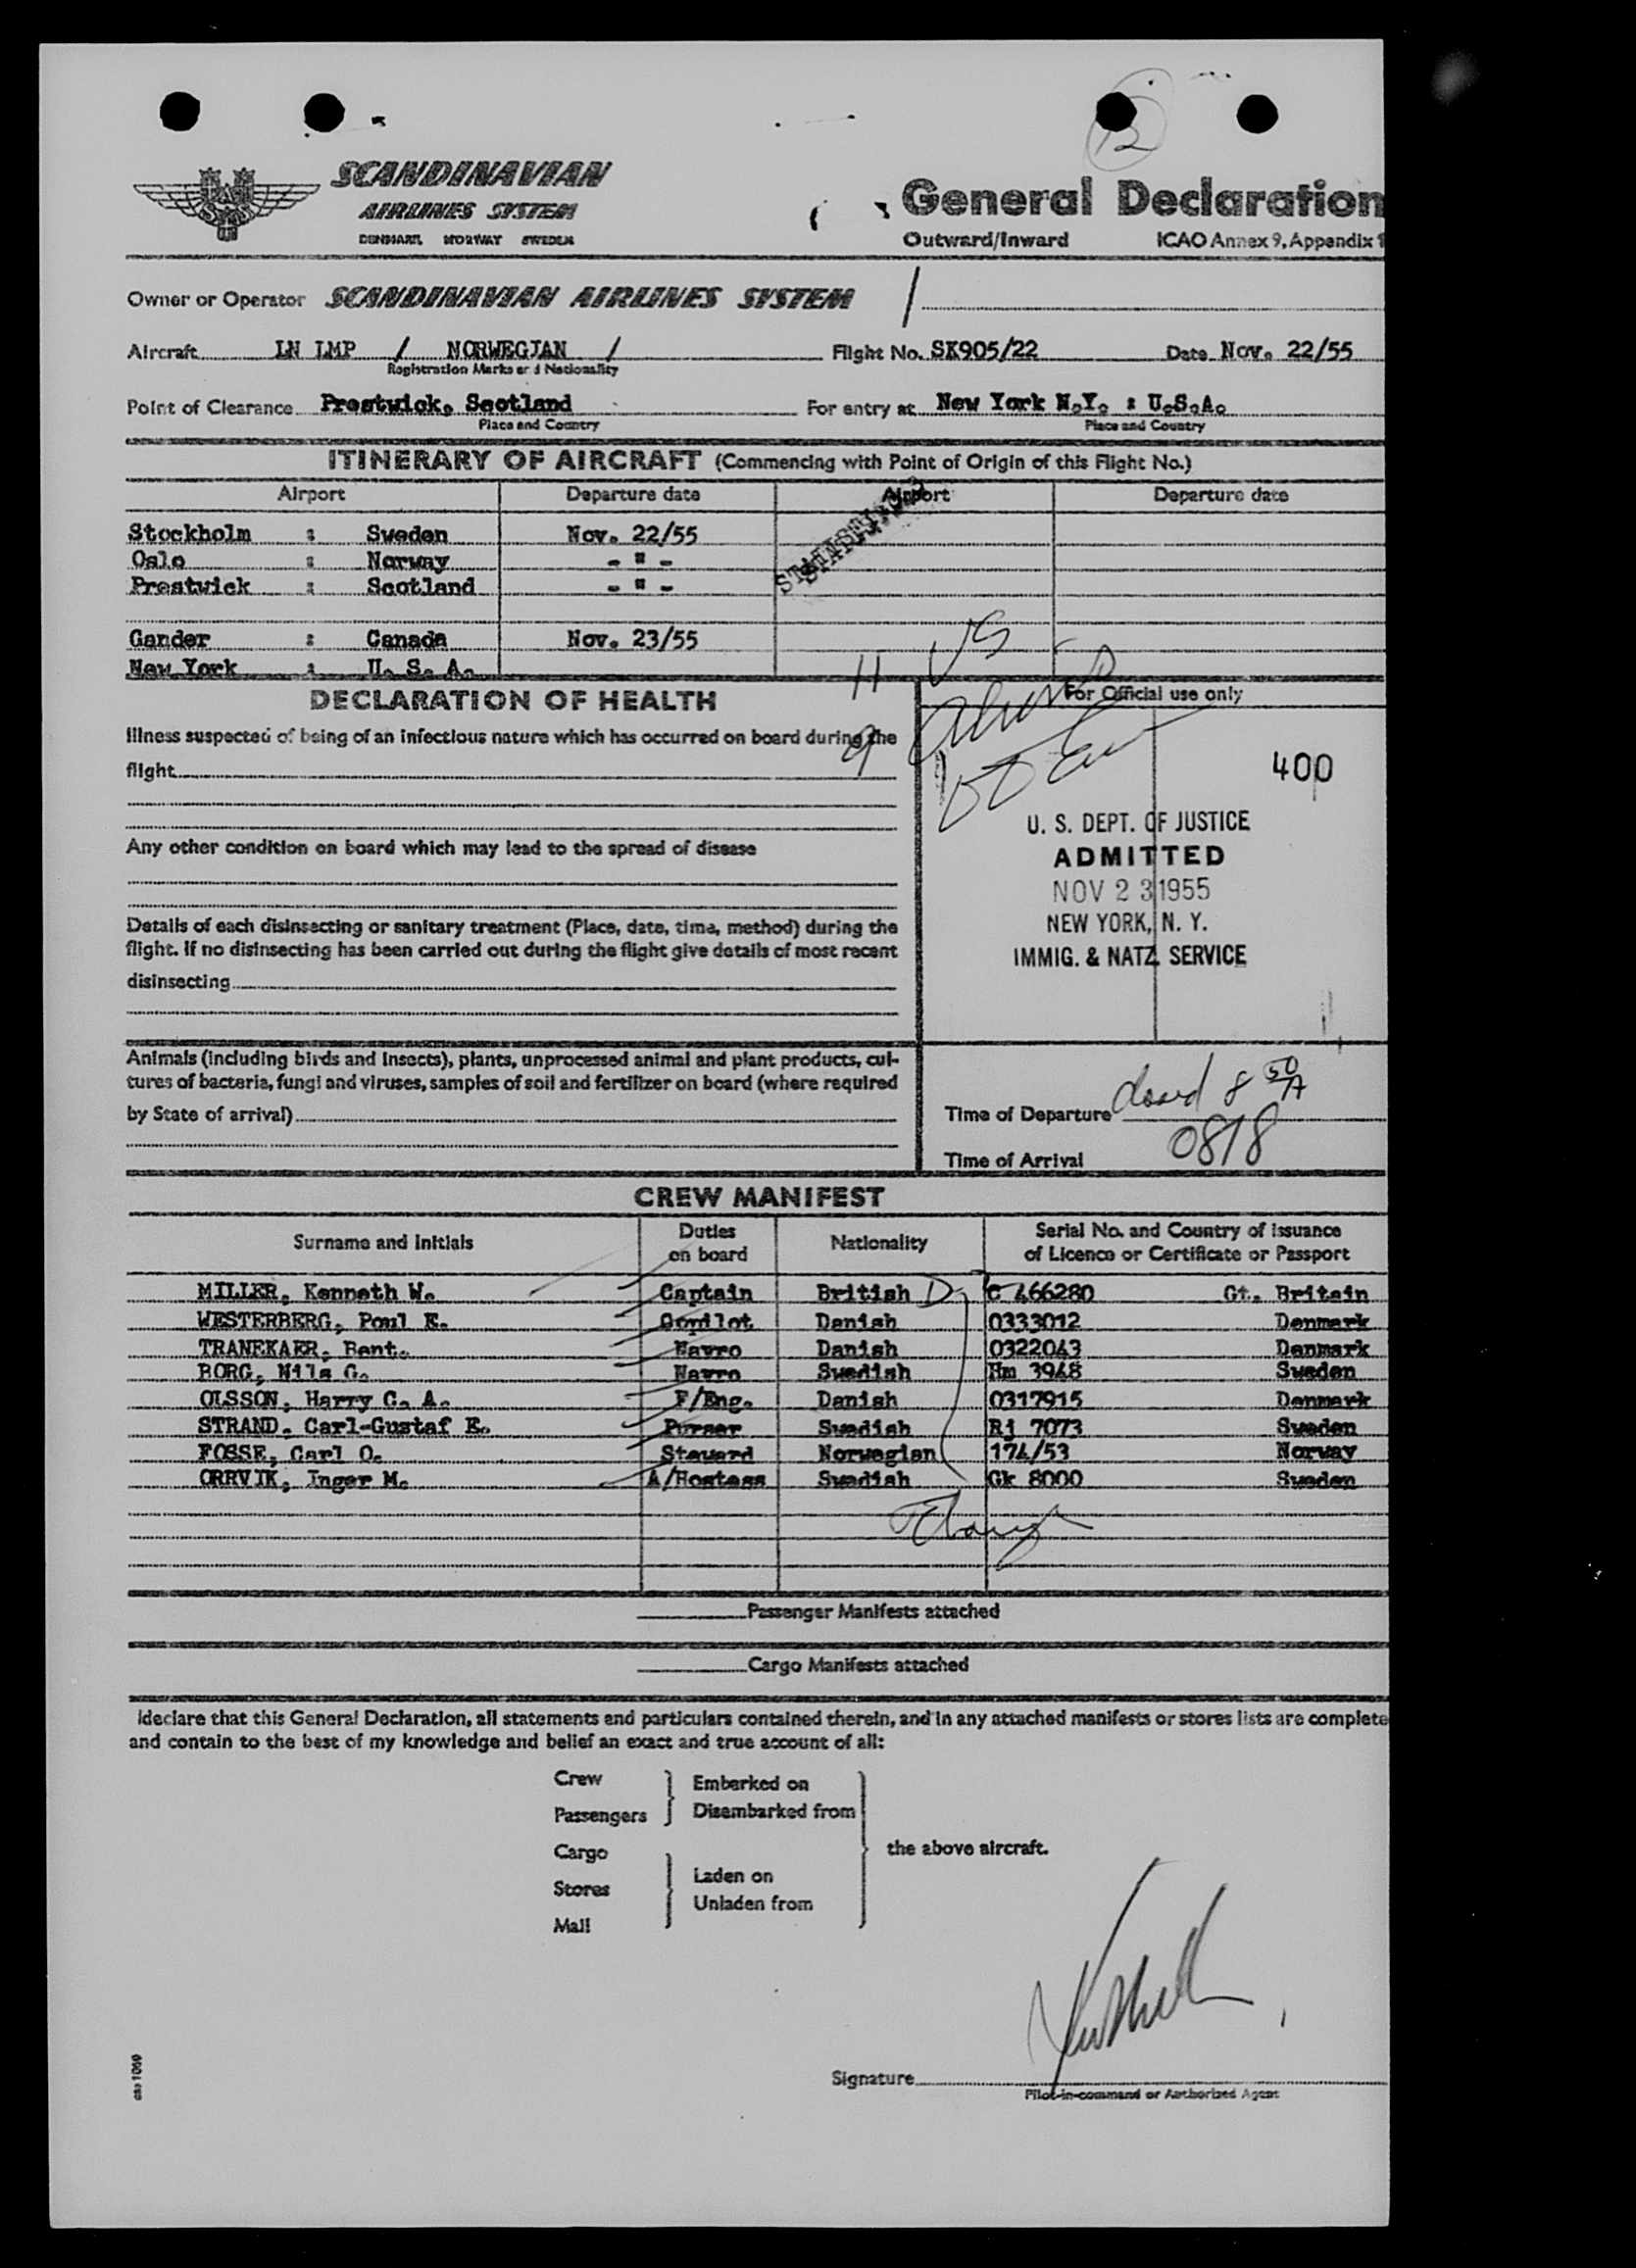 12
SCANDINAVIAN
AIRLINES SYSTEM
DENMARK NORWAY SWEDEN
General Declaration
Outward/Inward ICAO Annex 9, Appendix 1
Owner or Operator SCANDINAVIAN AIRLINES SYSTEM /
Aircraft LN LMP / NORWEGJAN / Flight No. SK905/22 Date Nov. 22/55
Registration Marks and Nationality
Point of Clearance Prestwick, Scotland For entry at New York N.Y. : U.S.A.
Place and Country Place and Country
ITINERARY OF AIRCRAFT (Commencing with Point of Origin of this Flight No.)
Airport Departure date Airport Departure date
Stockholm : Sweden Nov. 22/55
Oslo : Norway - " -
Prestwick : Scotland - " -
Gander : Canada Nov. 23/55
New York : U. S. A.
11 US
9
DECLARATION OF HEALTH
For Official use only
Illness suspected of being of an infectious nature which has occurred on board during the
flight
400
U. S. DEPT. OF JUSTICE
ADMITTED
NOV 23 1955
NEW YORK, N. Y.
IMMIG. & NATZ. SERVICE
Any other condition on board which may lead to the spread of disease
Details of each disinsecting or sanitary treatment (Place, date, time, method) during the
flight. If no disinsecting has been carried out during the flight give details of most recent
disinsecting
Animals (including birds and insects), plants, unprocessed animal and plant products, cul-
tures of bacteria, fungi and viruses, samples of soil and fertilizer on board (where required
by State of arrival)
Time of Departure 8 50 A
Time of Arrival 0818
CREW MANIFEST
Surname and Initials Duties on board Nationality Serial No. and Country of Issuance of Licence or Certificate or Passport
MILLER, Kenneth W. Captain British D C 466280 Gt. Britain
WESTERBERG, Poul E. Copilot Danish 0333012 Denmark
TRANEKAER, Bent. Navro Danish 0322043 Danmark
BORG, Nils G. Navro Swedish Hm 3948 Sweden
OLSSON, Harry C. A. F/Eng. Danish 0317915 Denmark
STRAND, Carl-Gustaf E. Purser Swedish Rj 7073 Sweden
FOSSE, Carl O. Steward Norwegian 174/53 Norway
ORRVIK, Inger M. A/Hostess Swedish Gk 8000 Sweden
Passenger Manifests attached
Cargo Manifests attached
I declare that this General Declaration, all statements and particulars contained therein, and in any attached manifests or stores lists are complete
and contain to the best of my knowledge and belief an exact and true account of all:
Crew
Passengers
Embarked on
Disembarked from
Cargo
Stores
Mail
Laden on
Unladen from
the above aircraft.
Signature
Pilot-in-command or Authorized Agent
sas 1069